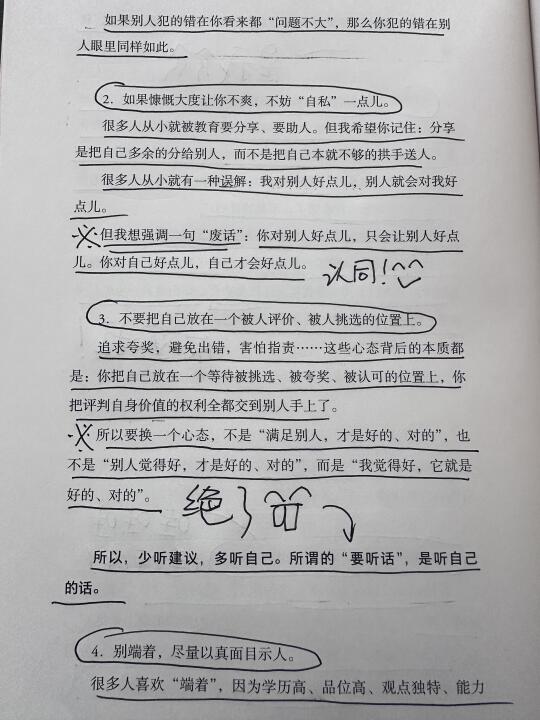 如果别人犯的错在你看来都“问题不大”，那么你犯的错在别
人眼里同样如此。
2．如果慷慨大度让你不爽，不妨“自私”一点儿。
很多人从小就被教育要分享、要助人。但我希望你记住：分享
是把自己多余的分给别人，而不是把自己本就不够的拱手送人。
很多人从小就有一种误解：我对别人好点儿，别人就会对我好
点儿。
但我想强调一句“废话”：你对别人好点儿，只会让别人好点
儿。你对自己好点儿，自己才会好点儿。
认同！^^
3．不要把自己放在一个被人评价、被人挑选的位置上。
追求夸奖，避免出错，害怕指责……这些心态背后的本质都
是：你把自己放在一个等待被挑选、被夸奖、被认可的位置上，你
把评判自身价值的权利全都交到别人手上了。
所以要换一个心态，不是“满足别人，才是好的、对的”，也
不是“别人觉得好，才是好的、对的”，而是“我觉得好，它就是
好的、对的”。
绝了
所以，少听建议，多听自己。所谓的“要听话”，是听自己
的话。
4．别端着，尽量以真面目示人。
很多人喜欢“端着”，因为学历高、品位高、观点独特、能力